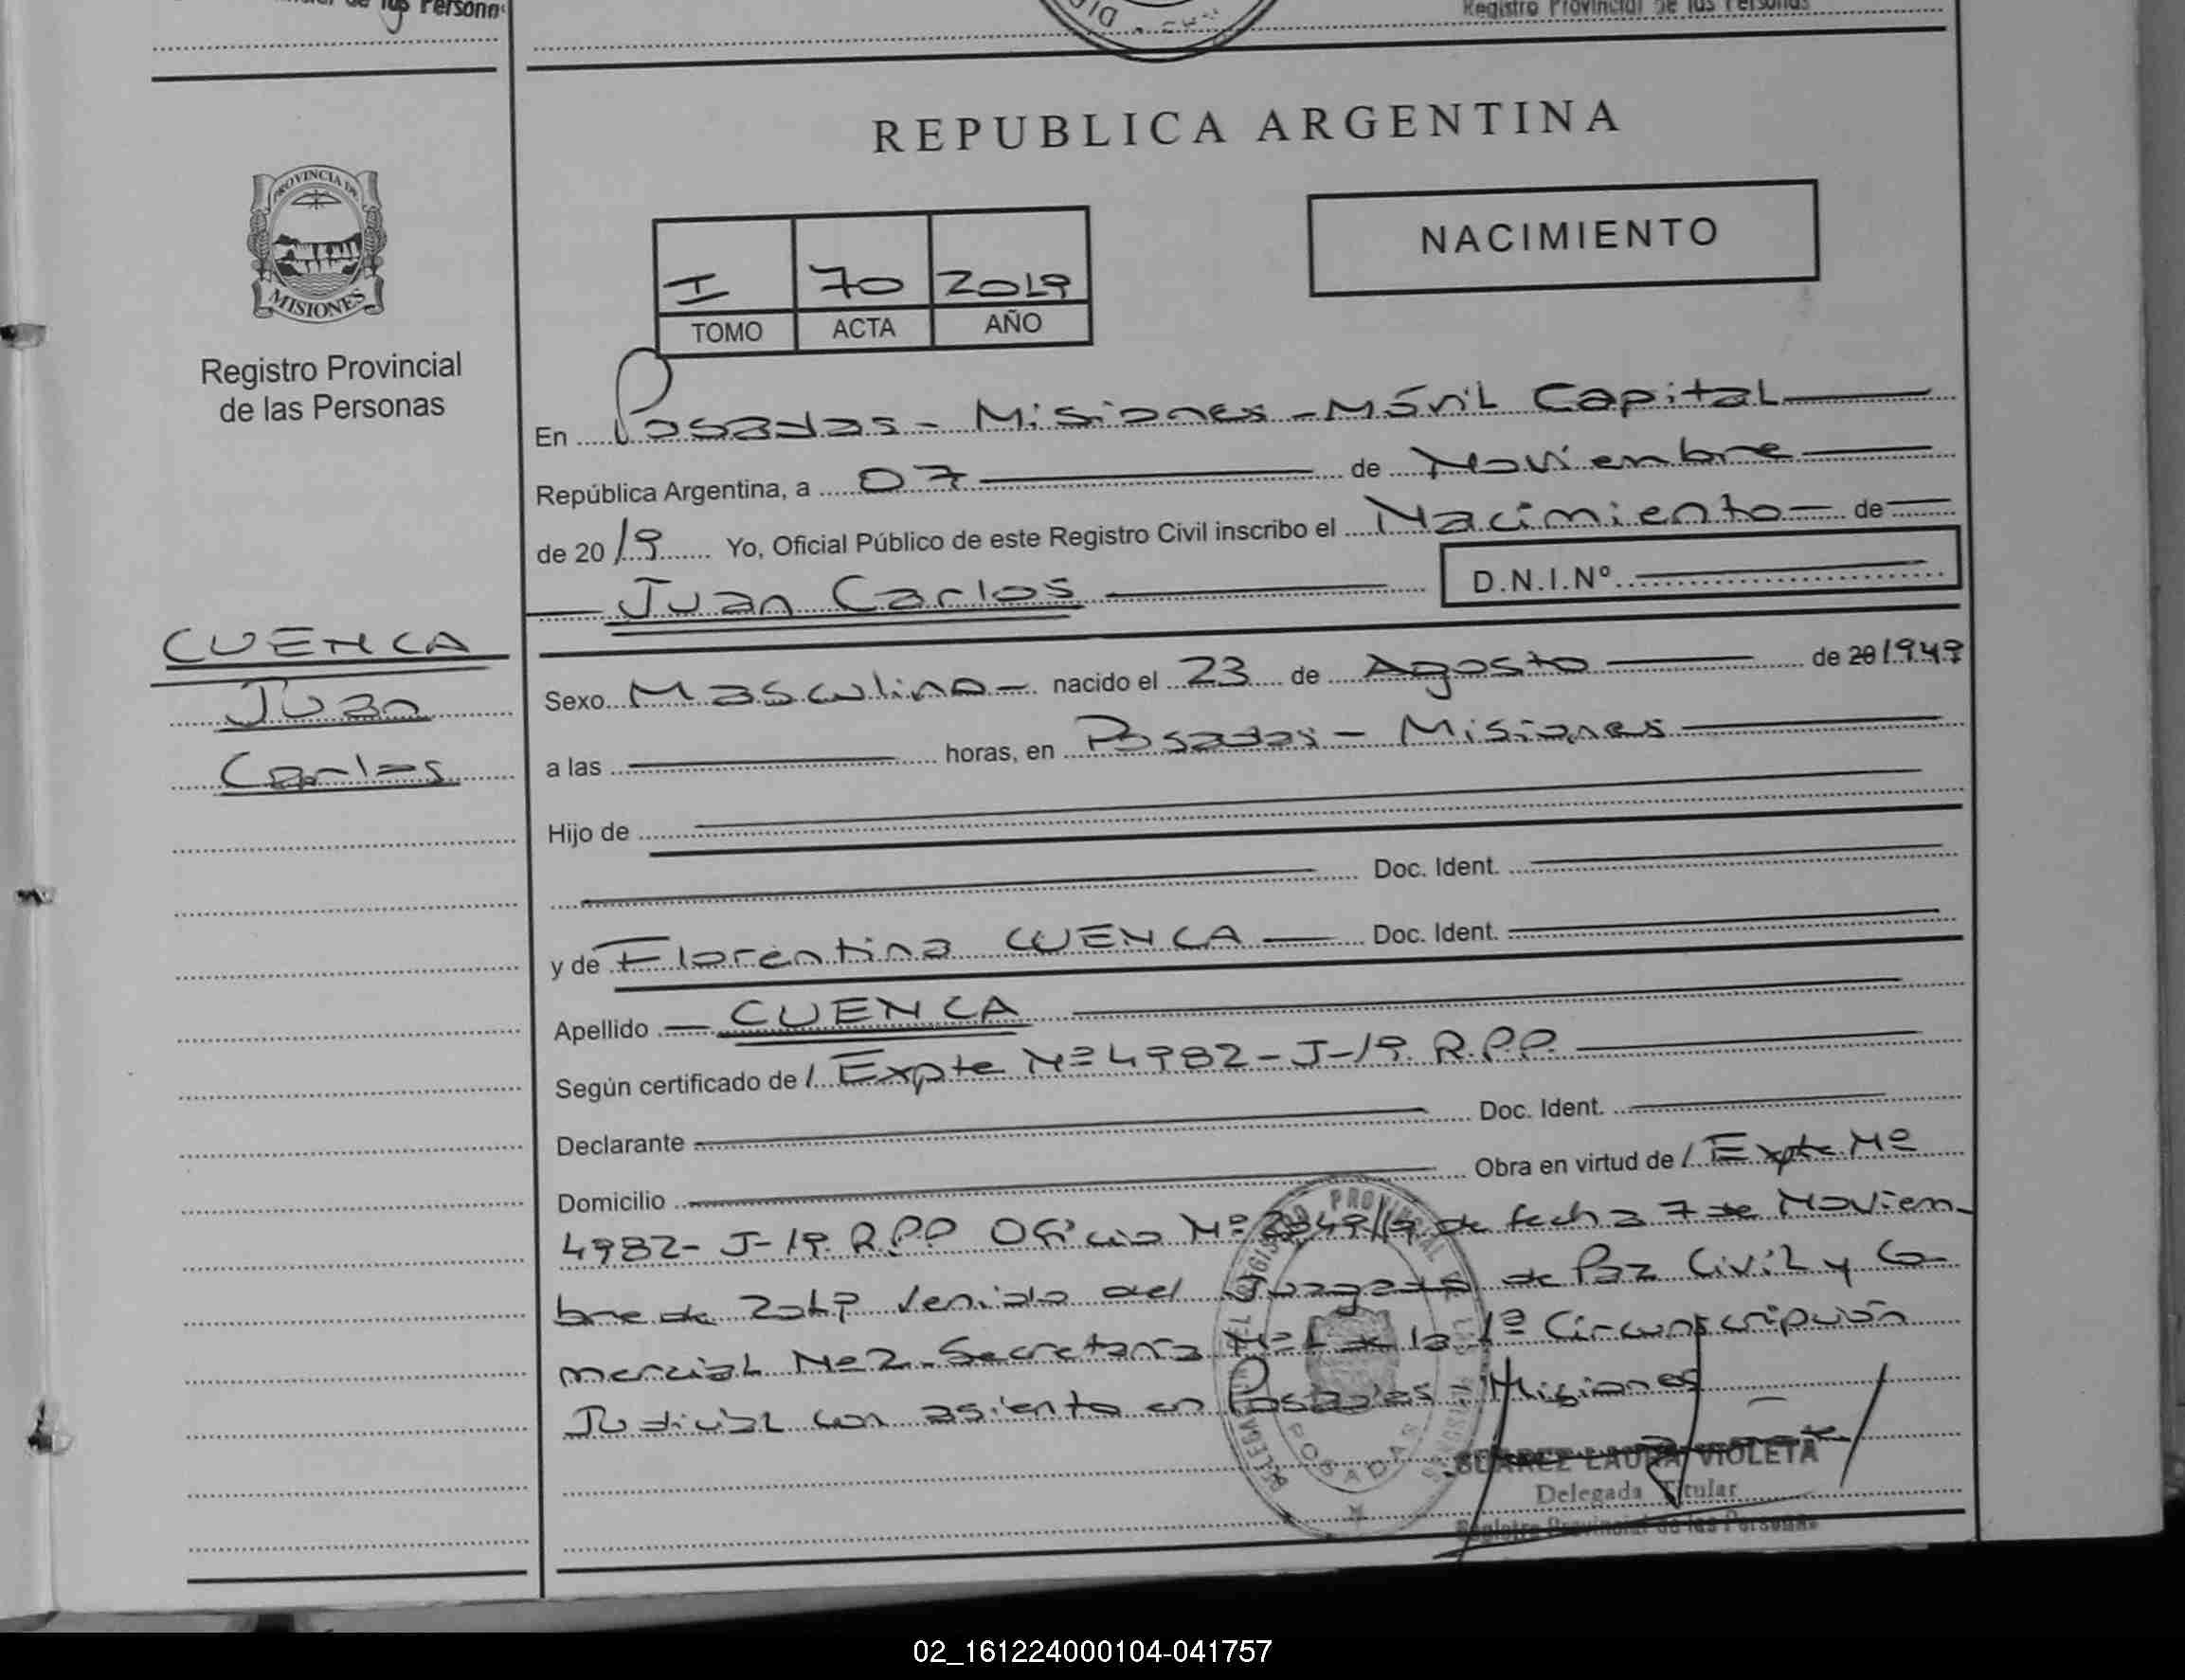 de las Persona
Registro Provincial de las Personas
REPUBLICA ARGENTINA
PROVINCIA DE
MISIONES
Registro Provincial
de las Personas
NACIMIENTO
I 70 2019
TOMO ACTA AÑO
En Posadas - Misiones - Móvil Capital
República Argentina, a 07 de Noviembre
de 2019 Yo, Oficial Público de este Registro Civil inscribo el Nacimiento de
Juan Carlos D.N.I.Nº
CUENCA
Juan
Carlos
Sexo Masculino nacido el 23 de Agosto de 20 1949
a las horas, en Posadas - Misiones
Hijo de
Doc. Ident.
y de Florentina CUENCA Doc. Ident.
Apellido CUENCA
Según certificado de / Expte Nº 4982-J-19. R.P.P.
Declarante Doc. Ident.
Domicilio Obra en virtud de / Expte Nº
4982-J-19. R.P.P Oficio Nº /19 de fecha 7 de Noviem-
bre de 2019 venido del Juzgado de Paz Civil y Co-
mercial Nº 2 - Secretaría Nº 1 de la 1º Circunscripción
Judicial con asiento en Posadas - Misiones
POSADAS
SUAREZ LAURA VIOLETA
Delegada Titular
Registro Provincial de las Personas
02_161224000104-041757